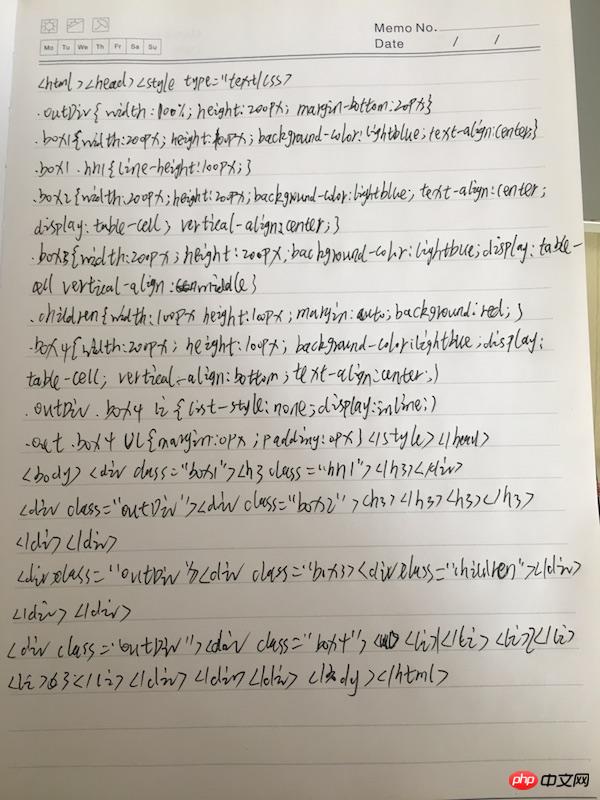 Memo No.
Mo Tu We Th Fr Sa Su
Date / /
<html><head><style type="text/css>
.outDiv{width:100%; height:200px; margin-bottom:20px}
.box1{width:200px; height:100px; background-color:lightblue; text-align:center;}
.box1 .hn1{line-height:100px;}
.box2{width:200px; height:200px; background-color:lightblue; text-align:center;
display:table-cell; vertical-align:center;}
.box3{width:200px; height:200px; background-color:lightblue; display:table-
cell vertical-align:middle}
.children{width:100px height:100px; margin:auto; background:red; }
.box4{width:200px; height:100px; background-color:lightblue; display:
table-cell; vertical-align:bottom; text-align:center;}
.outDiv .box4 li {list-style:none; display:inline;}
.out .box4 UL{margin:0px; padding:0px}</style></head>
<body> <div class="box1"><h3 class="hn1"></h3></div>
<div class="outDiv"><div class="box2"> <h3></h3><h3></h3>
</div></div>
<div class="outDiv"><div class="box3><div class="children"></div>
</div></div>
<div class="outDiv"><div class="box4"> <li></li> <li></li>
<li>63</li></div></div></div> </body></html>
php 中文网